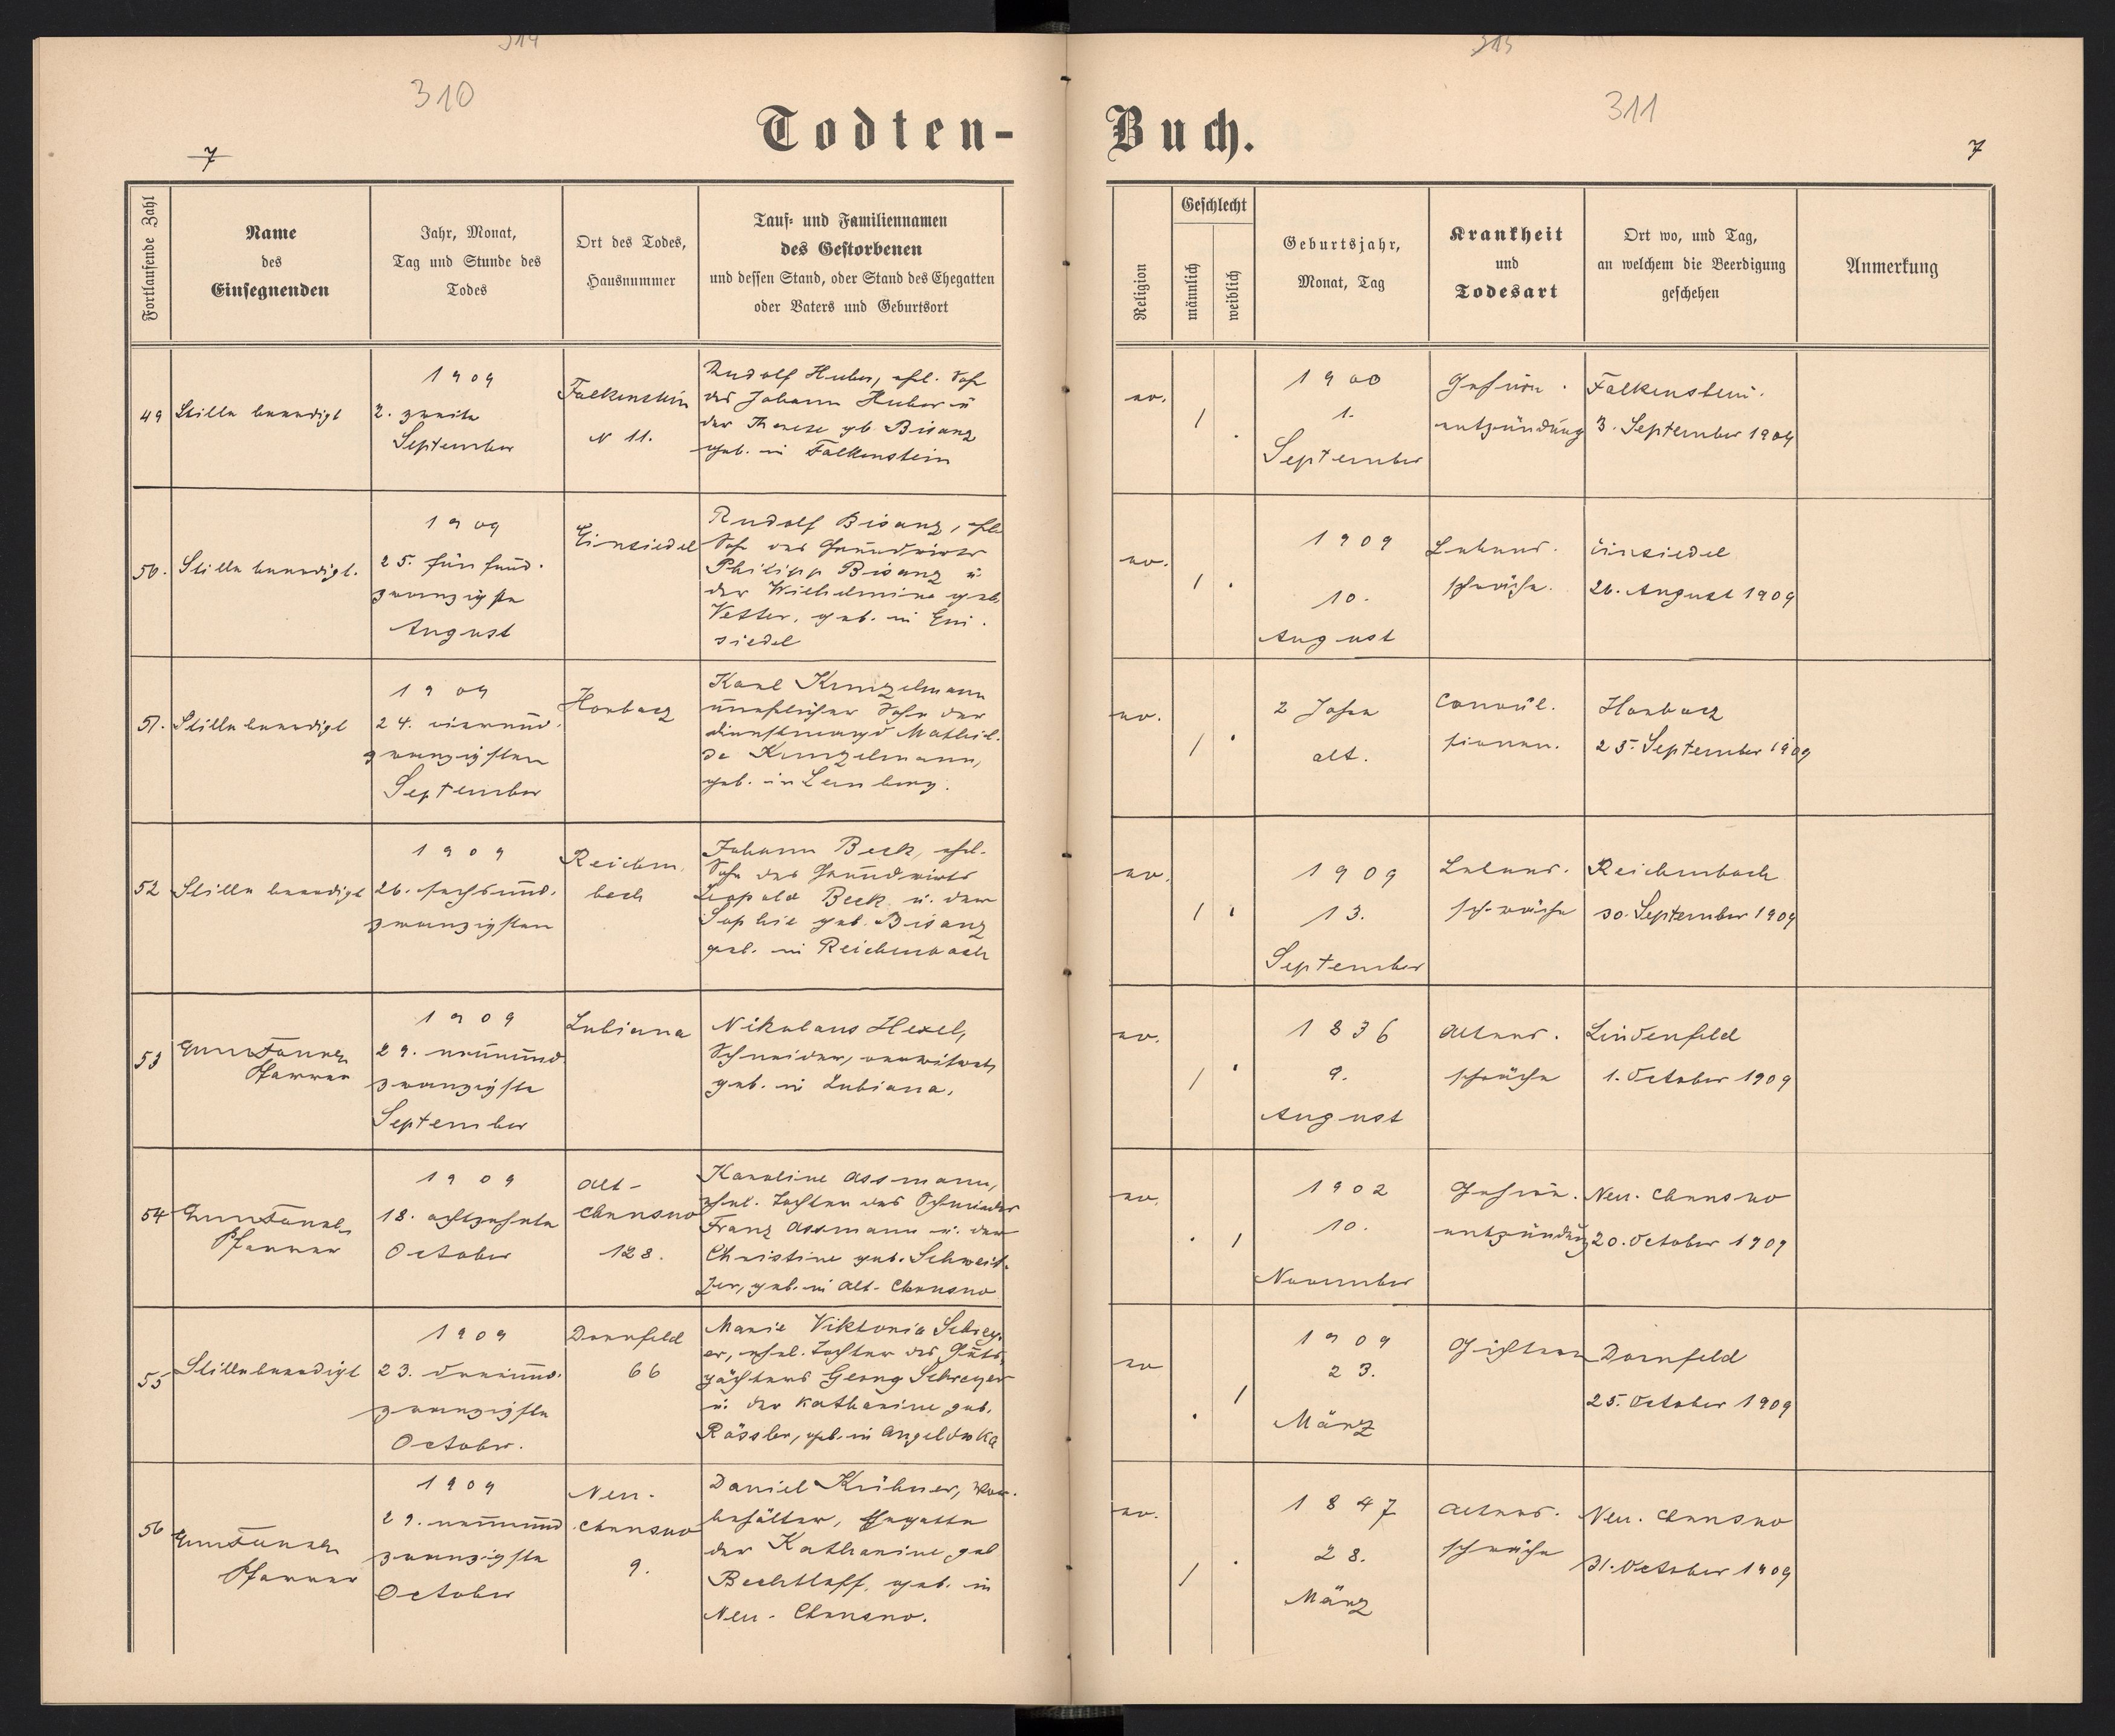 314
315
310
311
Todten-
Buch.
7
7
Fortlaufende Zahl
Name
des
Einsegnenden
Jahr, Monat,
Tag und Stunde des
Todes
Ort des Todes,
Hausnummer
Tauf- und Familiennamen
des Gestorbenen
und dessen Stand, oder Stand des Ehegatten
oder Vaters und Geburtsort
Religion
Geschlecht
männlich
weiblich
Geburtsjahr,
Monat, Tag
Krankheit
und
Todesart
Ort wo, und Tag,
an welchem die Beerdigung
geschehen
Anmerkung
49
Stille beerdigt
1909
2. zweite
September
Falkenstein
N 11.
Rudolf Huber, ehl. Sohn
des Johann Huber u
der Therese gb. Bisanz
geb. in Falkenstein
ev.
1
1900
1.
September
Gehirn.
entzündung
Falkenstein.
3. September 1909
50.
Stille beerdigt.
1909
25. fünfund.
zwanzigste
August
Einsiedel
Rudolf Bisanz, ehl.
Sohn des Grundwirts
Philipp Bisanz u.
der Wilhelmine geb.
Vetter, geb. in Ein.
siedel
ev.
1
1909
10.
August
Lebens.
schwäche.
Einsiedel
26. August 1909
51.
Stille beerdigt
1909
24. vierund.
zwanzigsten
September
Horbacz
Karl Kunzelmann
unehlicher Sohn der
Dienstmagd Mathil.
de Kunzelmann,
geb. in Lemberg.
ev.
1
2 Jahre
alt.
Convul.
sionen.
Horbacz
25. September 1909
52
Stille beerdigt
1909
26. sechsund.
zwanzigsten
Reichen.
bach
Johann Beck, ehl.
Sohn des Grundwirts
Leopold Beck u. der
Sophie geb. Bisanz
geb. in Reichenbach
ev.
1
1909
13.
September
Lebens.
schwäche
Reichenbach
30. September 1909
53
Pfarrer
1909
29. neunund
zwanzigste
September
Lubiana
Nikolaus Hexel,
Schneider, verwitwet
geb. in Lubiana.
ev.
1
1836
9.
August
Alters.
schwäche
Lindenfeld
1. October 1909
54
Pfarrer
1909
18. achtzehnte
October
Alt-
Chrusno
128.
Karoline Assmann,
ehel. Tochter des Schneider
Franz Assmann u. der
Christine geb. Schweit.
zer, geb. in Alt-Chrusno
ev.
1
1902
10.
November
Gehirn.
entzündung
Neu-Chrusno
20. October 1909
55
Stille beerdigt
1909
23. dreiund.
zwanzigste
October.
Dornfeld
66
Marie Viktoria Schrey.
er, ehel. Tochter des Guts.
pächters Georg Schreyer
u. der Katharine geb.
Rössler, geb. in Angelowka
ev
1
1909
23.
März
Gichtern
Dornfeld
25. October 1909
56
Pfarrer
1909
29. neunund
zwanzigste
October
Neu-
Chrusno
9.
Daniel Krühner, Vor.
behälter, Ehegatte
der Katharine geb
Bechtloff, geb. in
Neu-Chrusno.
ev.
1
1847
28.
März
Alters.
schwäche
Neu-Chrusno
31. October 1909